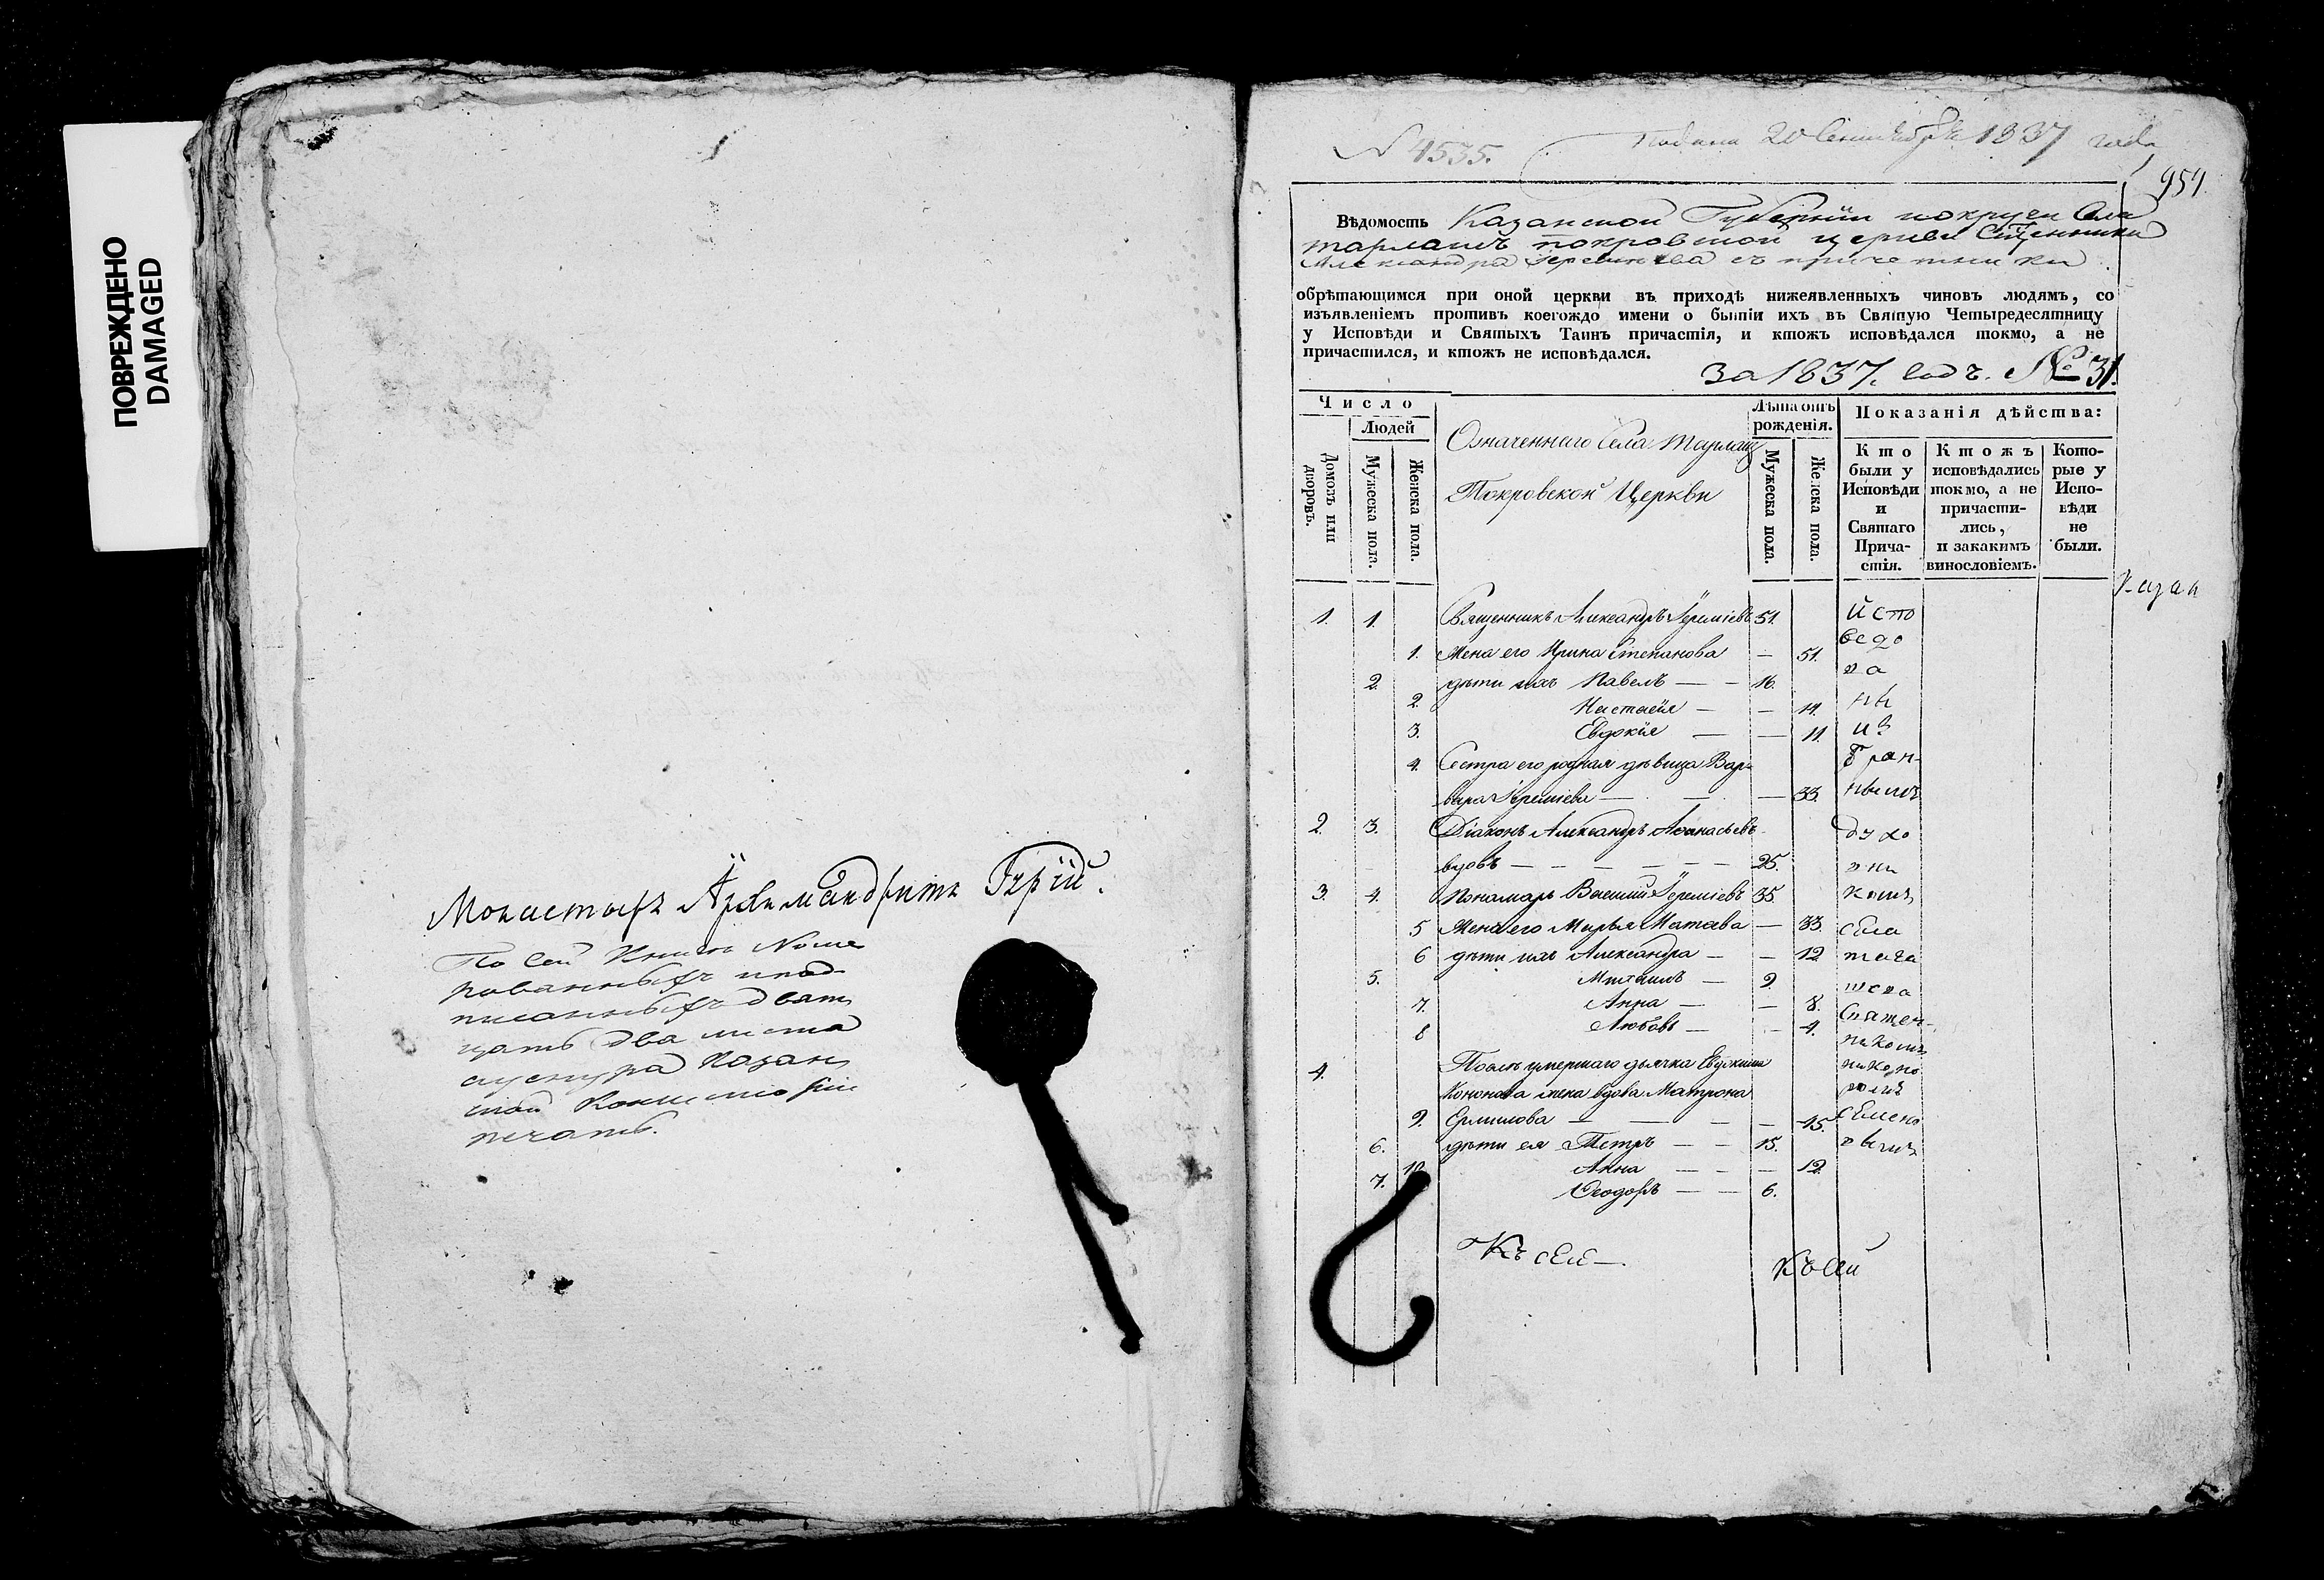 ПОВРЕЖДЕНО
DAMAGED
Монастыря Архимандритъ Гурій.
По сей Книге Номе
рованныхъ и под
писанныхъ двать
цать два листа
Казан
ской Консисторіи
печать.
N 4535.
Подана 20 Сентября 1837 года
959
Вѣдомость Казанской Губерніи округи Села
тарлашъ покровской церкви Священника
Александра с причетники
обрѣтающимся при оной церкви въ приходѣ нижеявленныхъ чиновъ людямъ, со
изъявленіемъ противъ коегождо имени о бытіи ихъ въ Святую Четыредесятницу
у Исповѣди и Святыхъ Таинъ причастія, и ктожъ исповѣдался токмо, а не
причастился, и ктожъ не исповѣдался.
за 1837. годъ. № 31.
Число
Людей
Домовъ или дворовъ.
Мужеска пола.
Женска пола.
Означеннаго Села Тарлашъ
Покровской Церкви
Лѣта отъ рожденія.
Мужеска пола.
Женска пола.
Показанія дѣйства:
Кто были у Исповѣди и Святаго Причастія.
Ктожъ исповѣдались токмо, а не причастились, и закакимъ винословіемъ.
Которые у Исповѣди не были.
Казан
1. 1. Священникъ Александръ Іереміевъ 51. Испо
1. Жена его Ирина Степанова — 51. ведо
2. дѣти ихъ Павелъ — — 16. ва
2. Настасія — — 14. ны
3. Евдокія — — 11. из
4. Сестра его родная дѣвица Вар
вара Іереміева — — — 33.
2. 3. Діаконъ Александръ Аѳанасьевъ духо
вдовъ — — — — — — 25. вни
3. 4. Пономарь Василій Іереміевъ 35. комъ
5 Жена его Марья Матвева — 33. села
6 дѣти ихъ Александра — — 12
5. Михаилъ — 9.
7. Анна — — 8. Священ
8 Любовь — — 4. никомъ
4. Послѣ умершаго дьячка Евдокима никоно
Кононова жена вдова Матрона ромъ
9. Ермилова — — — — 45. Семено
6. дѣти ея Петръ — — 15. вымъ
10 Анна — — — 12
7. Ѳеодоръ — — 6.
Къ сей
Къ сей